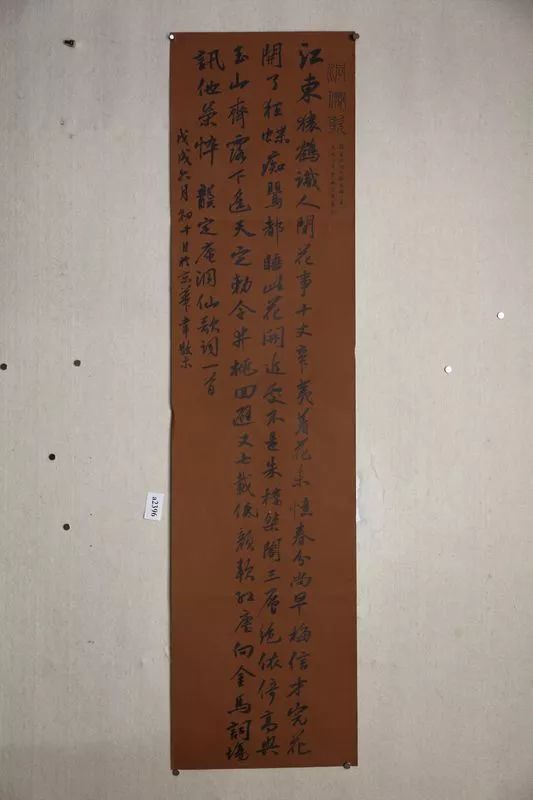 洞僊歌
江東猿鶴識人間花事十丈辛夷著花未憶春分尚早梅信才完花
開了狂蝶痴鶯都睡此花開近處不是朱樓桀閣三層絕依倚高與
玉山齊露下遙天定勅令井桃回避又七載低顏軟紅塵向金馬詞場
訊他榮悴 龔定庵洞仙歌詞一首
戊戌六月初十日於京華韋散木
a2396